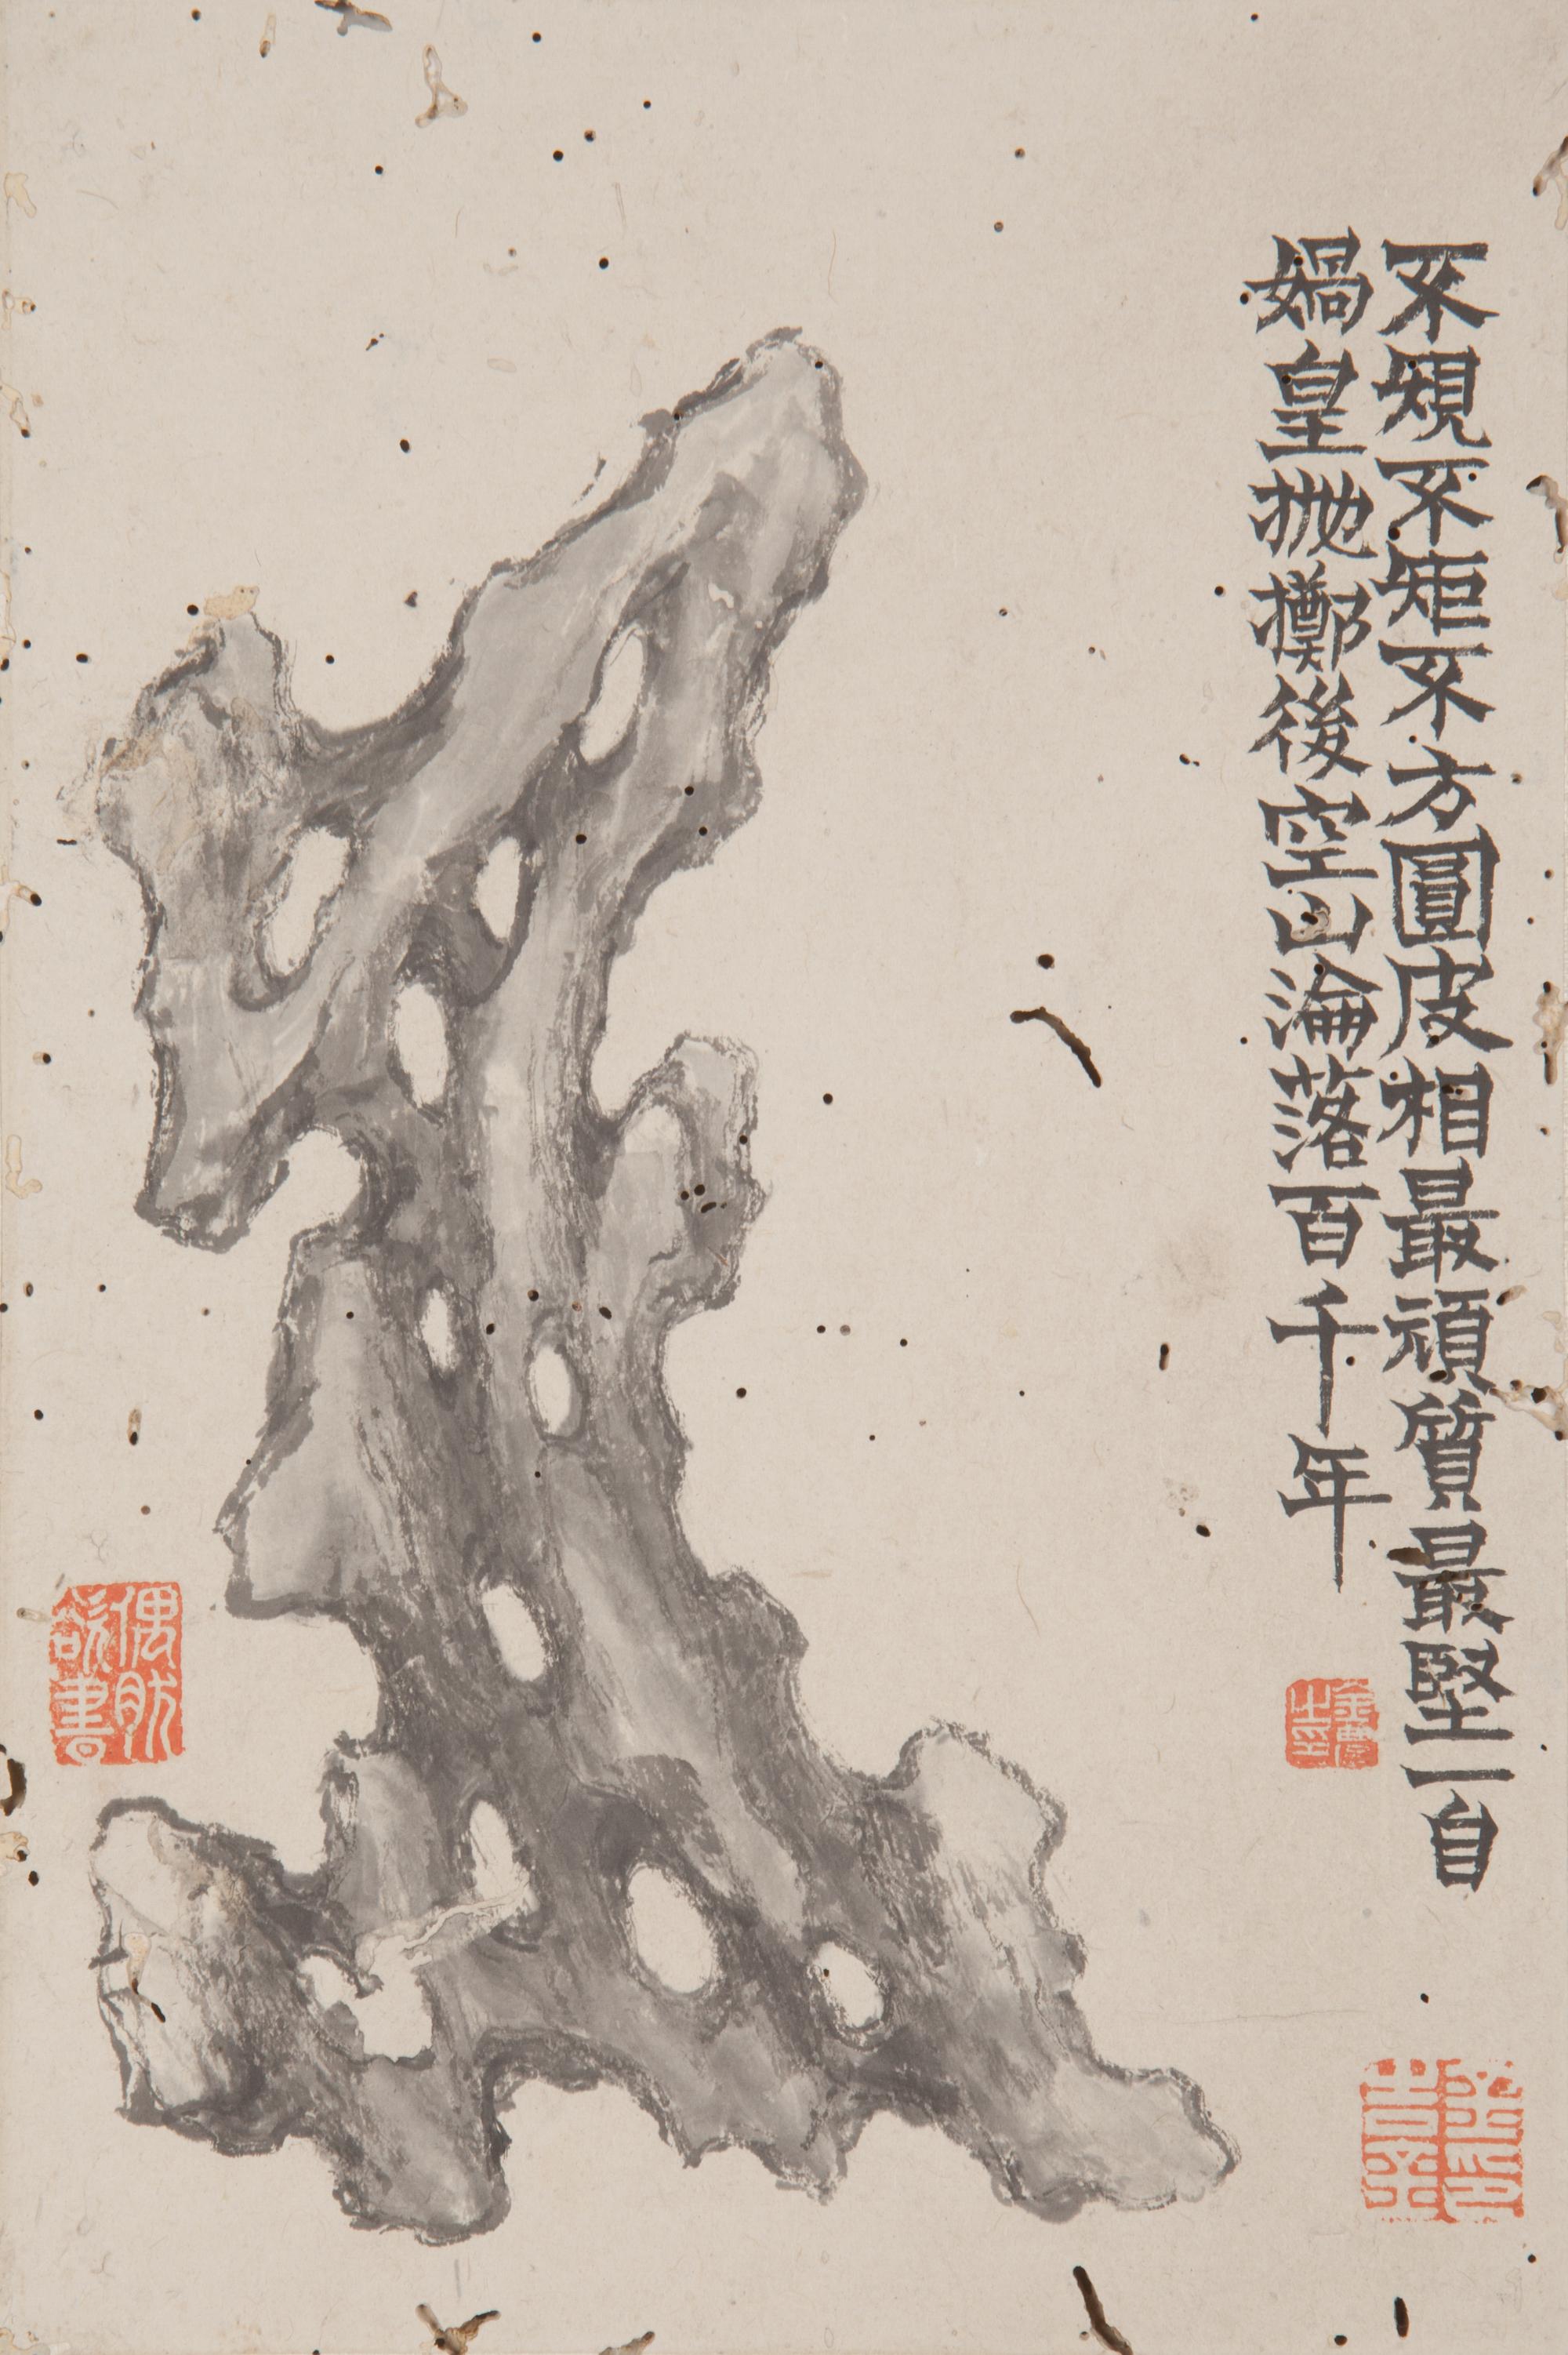 不規不矩不方圓皮相最頑質最堅一自
媧皇抛擲後空山淪落百千年
金農之印
偶然欲書